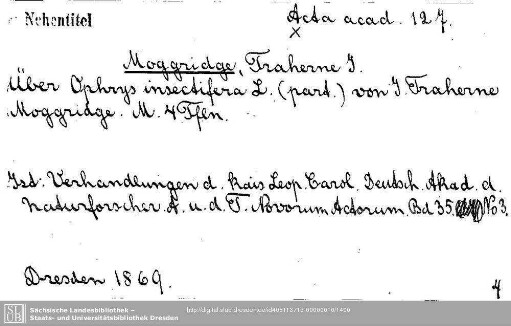 Nebentitel
Acta acad. 127.
x
Moggridge, Traherne J.
Über Ophrys insectifera L. (part.) von J. Traherne
Moggridge. M. 4 Tfln.
Ist: Verhandlungen d. Kais. Leop. Carol. Deutsch. Akad. d.
Naturforscher. A. u. d. T. Novorum Actorum. Bd 35. No 3.
Dresden 1869.
4
SLUB
Sächsische Landesbibliothek –
Staats- und Universitätsbibliothek Dresden